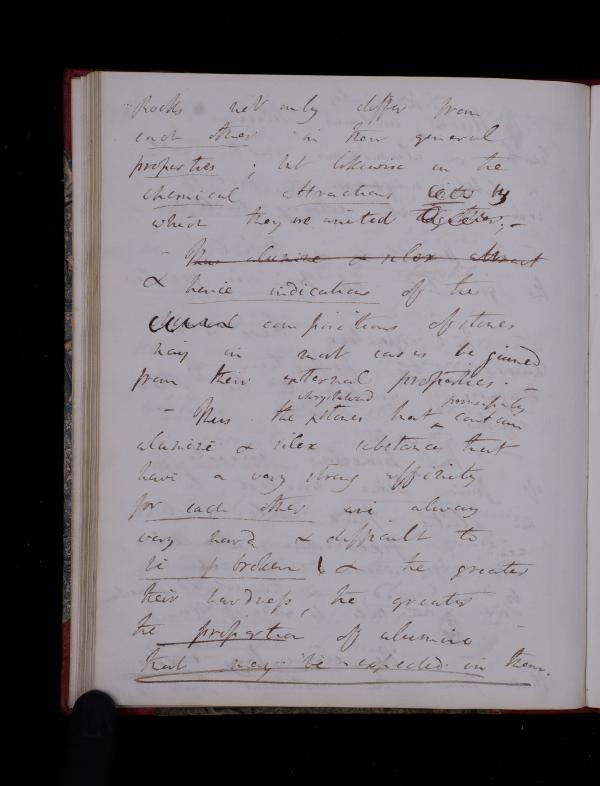 Rocks not only differ from
each other in their general
properties; but likewise in the
chemical attractions by
which they are united together;-
- Thus alumine & silex attract
& hence indications of the
compositions of stones
may in most cases be gained
from their external properties. -
chrystalized principally
- Thus the stones that contain
alumine & silex substances that
have a very strong affinity
for each other are always
very hard & difficult to
be broken & the greater
their hardness, the greater
the proportion of alumine
that may be expected in them.